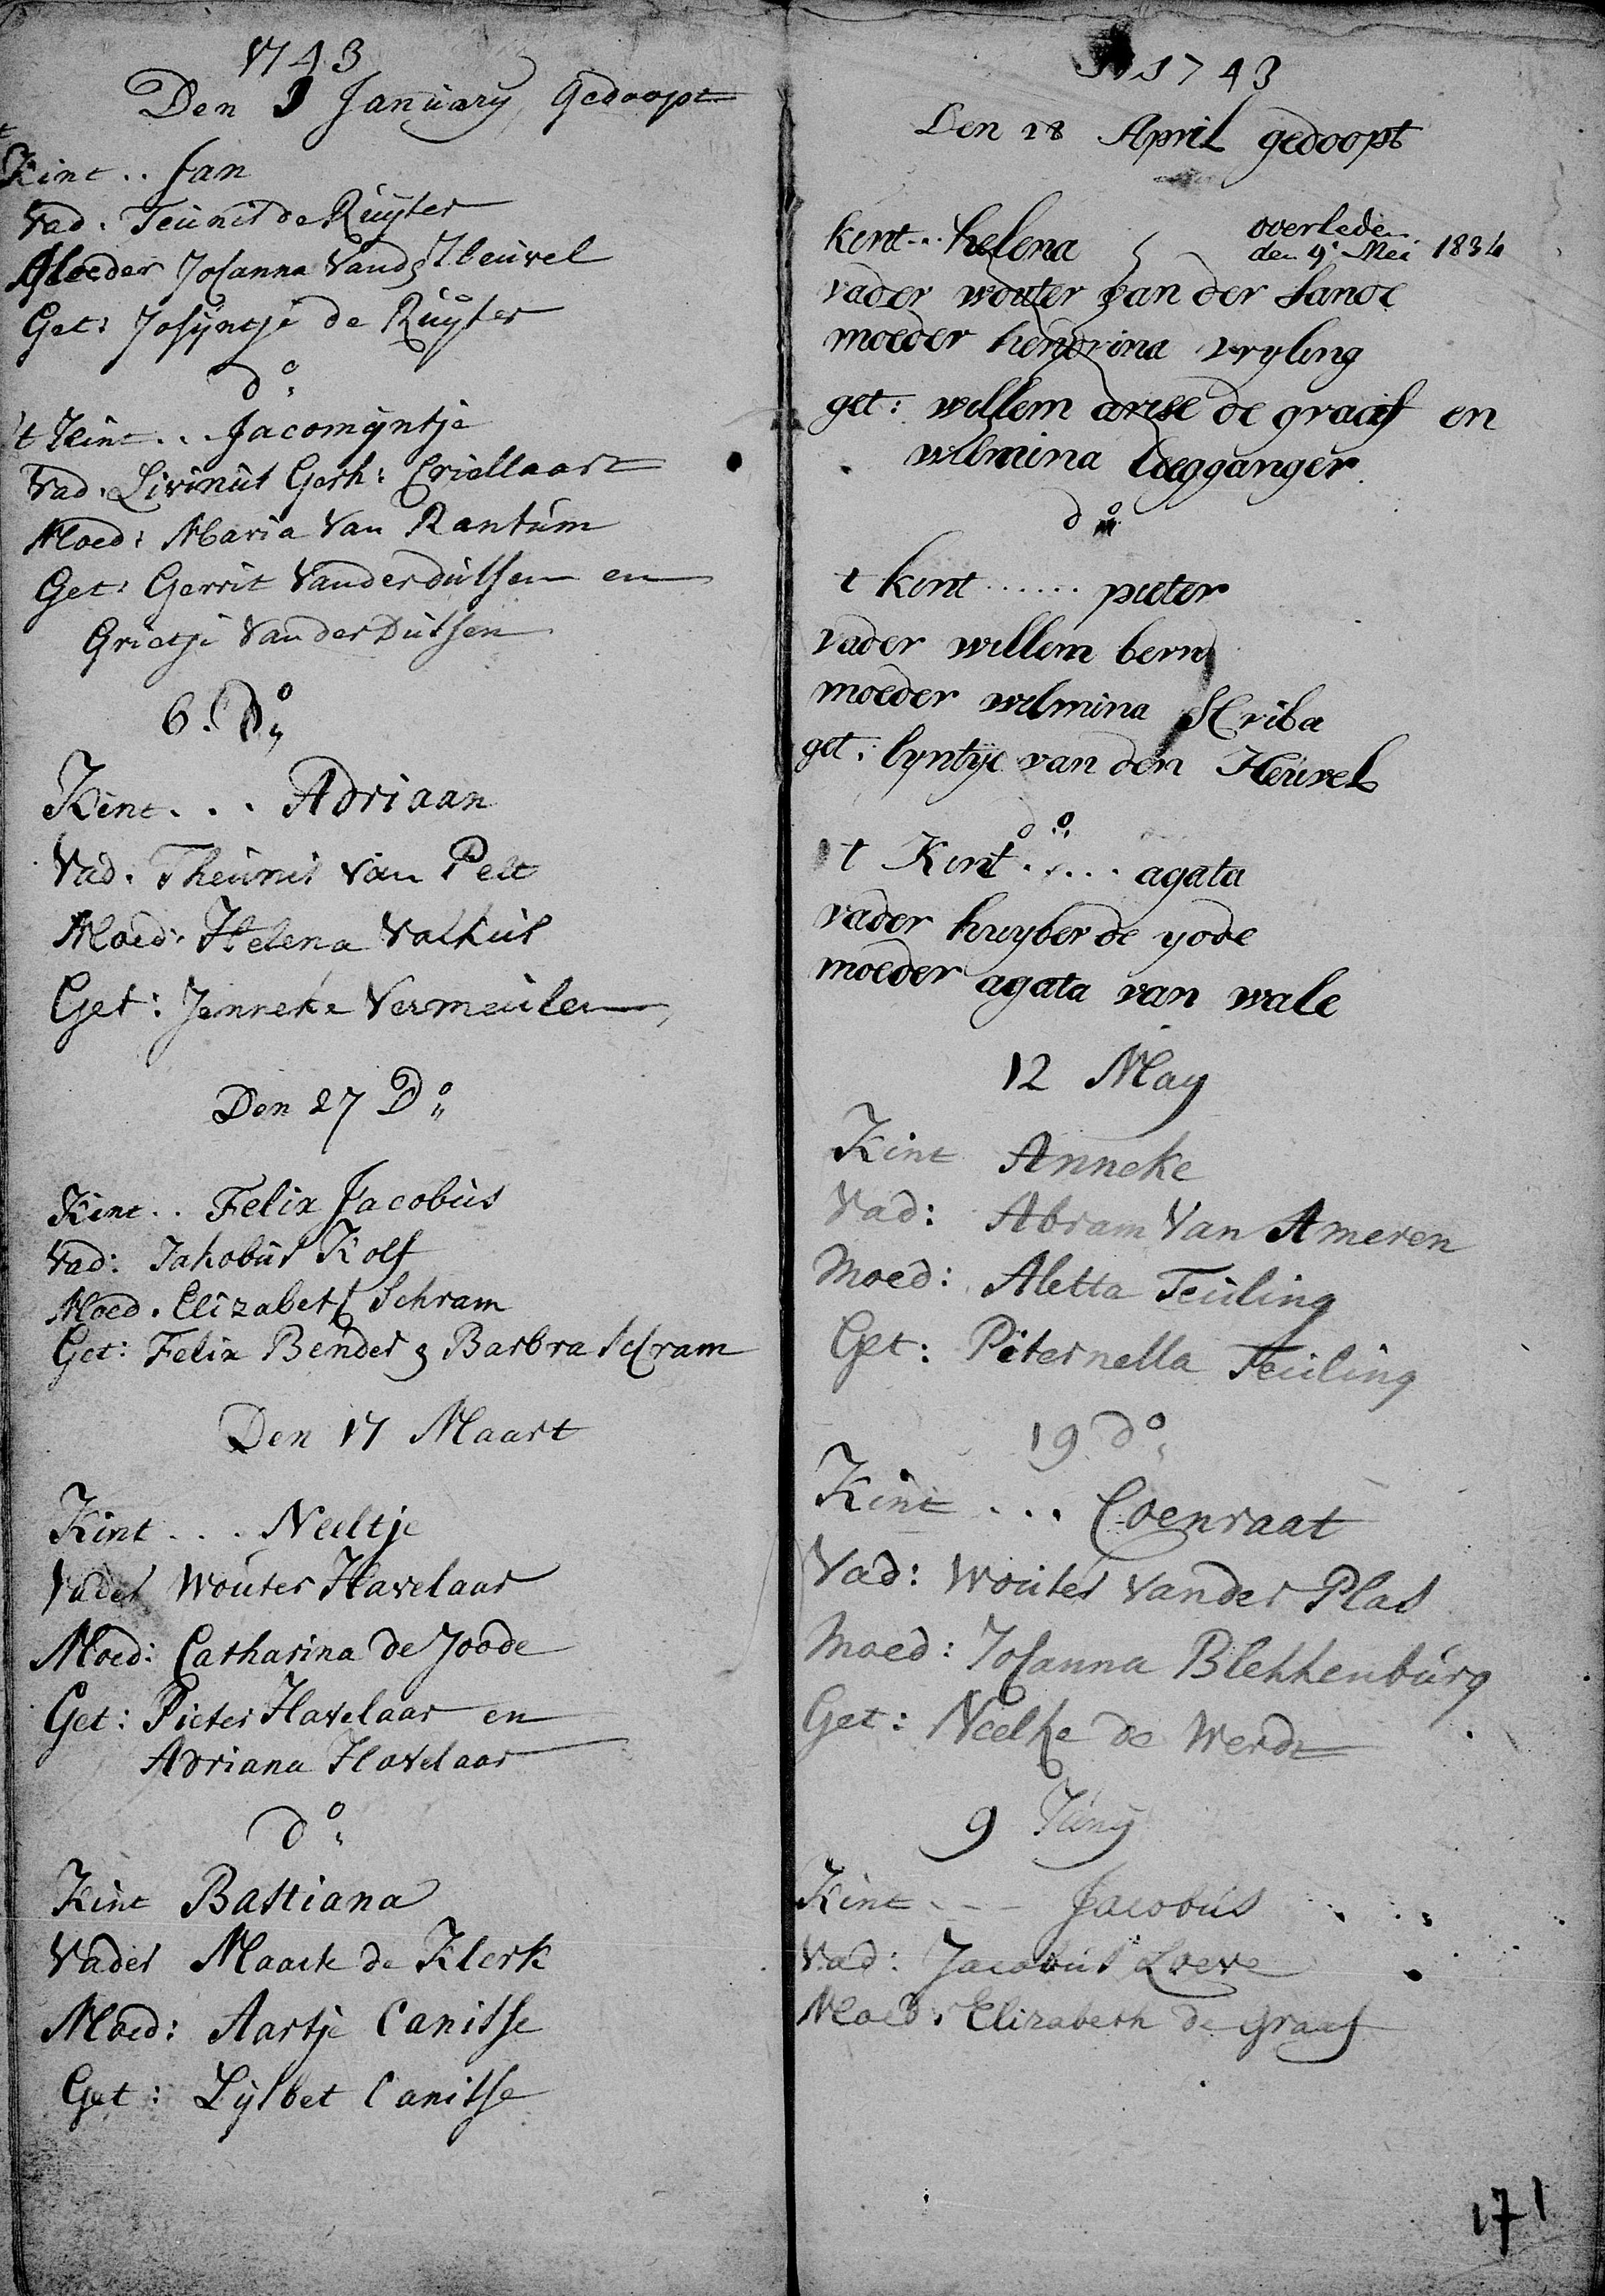 1743
Den 1 January Gedoopt
Kint .. Jan
Vad. Teunis de Ruyter
Moeder Johanna Vand Heuvel
Get: Josyntje de Ruyter
do
't Kint ... Jacomyntje
Vad. Livinus Gerh: Criellaart
Moed: Maria Van Rantum
Get: Gerrit Vanderdussen en
Grietje Van der Dussen
6. Do
Kint ... Adriaan
Vad. Theunis van Pelt
Moed: Helena
Get: Jenneke Vermeulen
Den 27 Do
Kint .. Felix Jacobus
Vad: Jakobus Kolf
Moed. Elizabeth Schram
Get: Felix Bender & Barbra Schram
Den 17 Maart
Kint ... Neeltje
Vader Wouter Havelaar
Moed: Catharina de Joode
Get: Pieter Havelaar en
Adriana Havelaar
do
Kint Bastiana
Vader Maarte de Klerk
Moed: Aartje Canisse
Get: Lysbet Canisse
1743
Den 28 April gedoopt
kint ... helena overleden
den 9e Mei 1834
vader wouter van der Sande
moeder hendrina vryling
get: willem arise de graaf en
wilmina
do
t kint ...... pieter
vader willem bern
moeder wilmina Scriba
get: lyntye van den Heuvel
do
t Kint ..... agata
vader huyber de yode
moeder agata van wale
12 May
Kint Anneke
Vad: Abram Van Ameren
Moed: Aletta Teuling
Get: Piternella Teuling
19 do
Kint ... Coenraat
Vad: Wouter Vander Plas
Moed: Johanna Blekkenburg
Get: Neelke de Werdt
9 Juny
Kint - - - Jacobus
Vad: Jacobus Loeve
Moed: Elizabeth de graaf
171